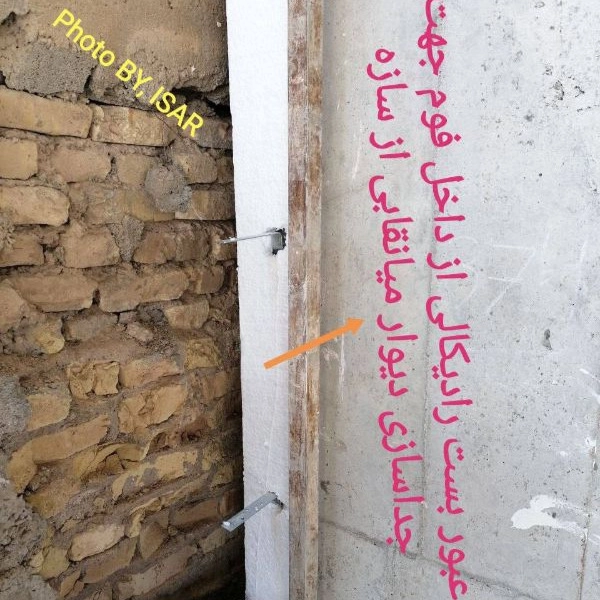 Photo BY, ISAR
عبور بست رادیکالی از داخل فوم جهت
جداسازی دیوار میانقابی از سازه